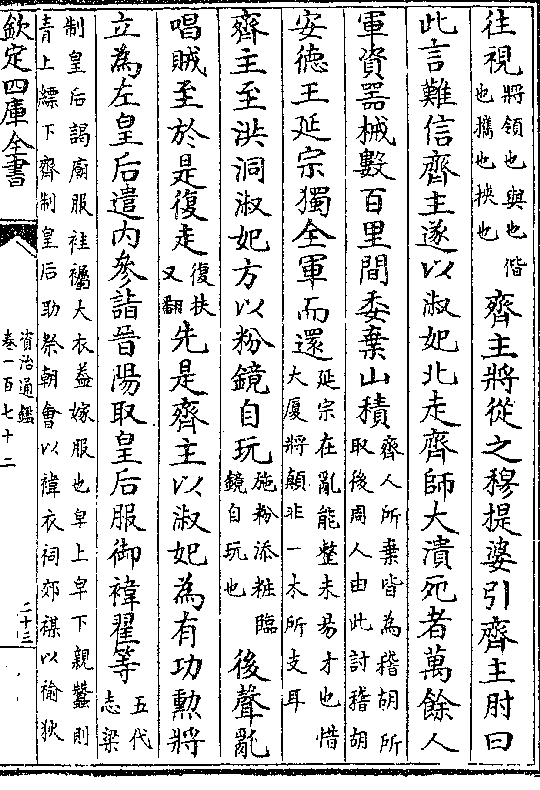 往視將領也與也偕也攜也挾也齊主將從之穆提婆引齊主肘曰
此言難信齊主遂以淑妃北走齊師大潰死者萬餘人
軍資器械數百里間委棄山積齊人所棄皆為稽胡所取後周人由此討稽胡
安德王延宗獨全軍而還延宗在亂能整未易才也惜大厦將顛非一木所支耳
齊主至洪洞淑妃方以粉鏡自玩施粉添粧臨鏡自玩也後聲亂
唱賊至於是復走復扶又翻先是齊主以淑妃為有功勲將
立為左皇后遣内參詣晉陽取皇后服御褘翟等五代志梁
制皇后謁廟服袿䙱大衣葢嫁服也皁上皁下親蠶則
青上縹下齊制皇后助祭朝會以褘衣祠郊禖以褕狄
欽定四庫全書
資治通鑑
卷一百七十二
二十三